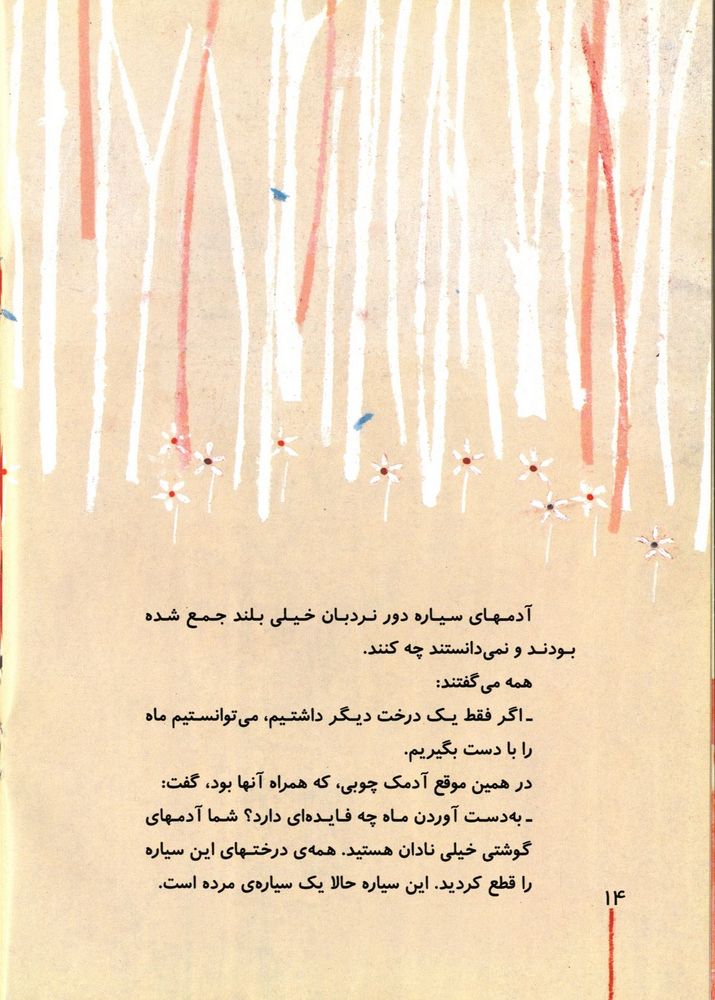 آدمهای سیاره دور نردبان خیلی بلند جمع شده
بودند و نمی‌دانستند چه کنند.
همه می‌گفتند:
ـ اگر فقط یک درخت دیگر داشتیم، می‌توانستیم ماه
را با دست بگیریم.
در همین موقع آدمک چوبی، که همراه آنها بود، گفت:
ـ به‌دست آوردن ماه چه فایده‌ای دارد؟ شما آدمهای
گوشتی خیلی نادان هستید. همه‌ی درختهای این سیاره
را قطع کردید. این سیاره حالا یک سیاره‌ی مرده است.
۱۴